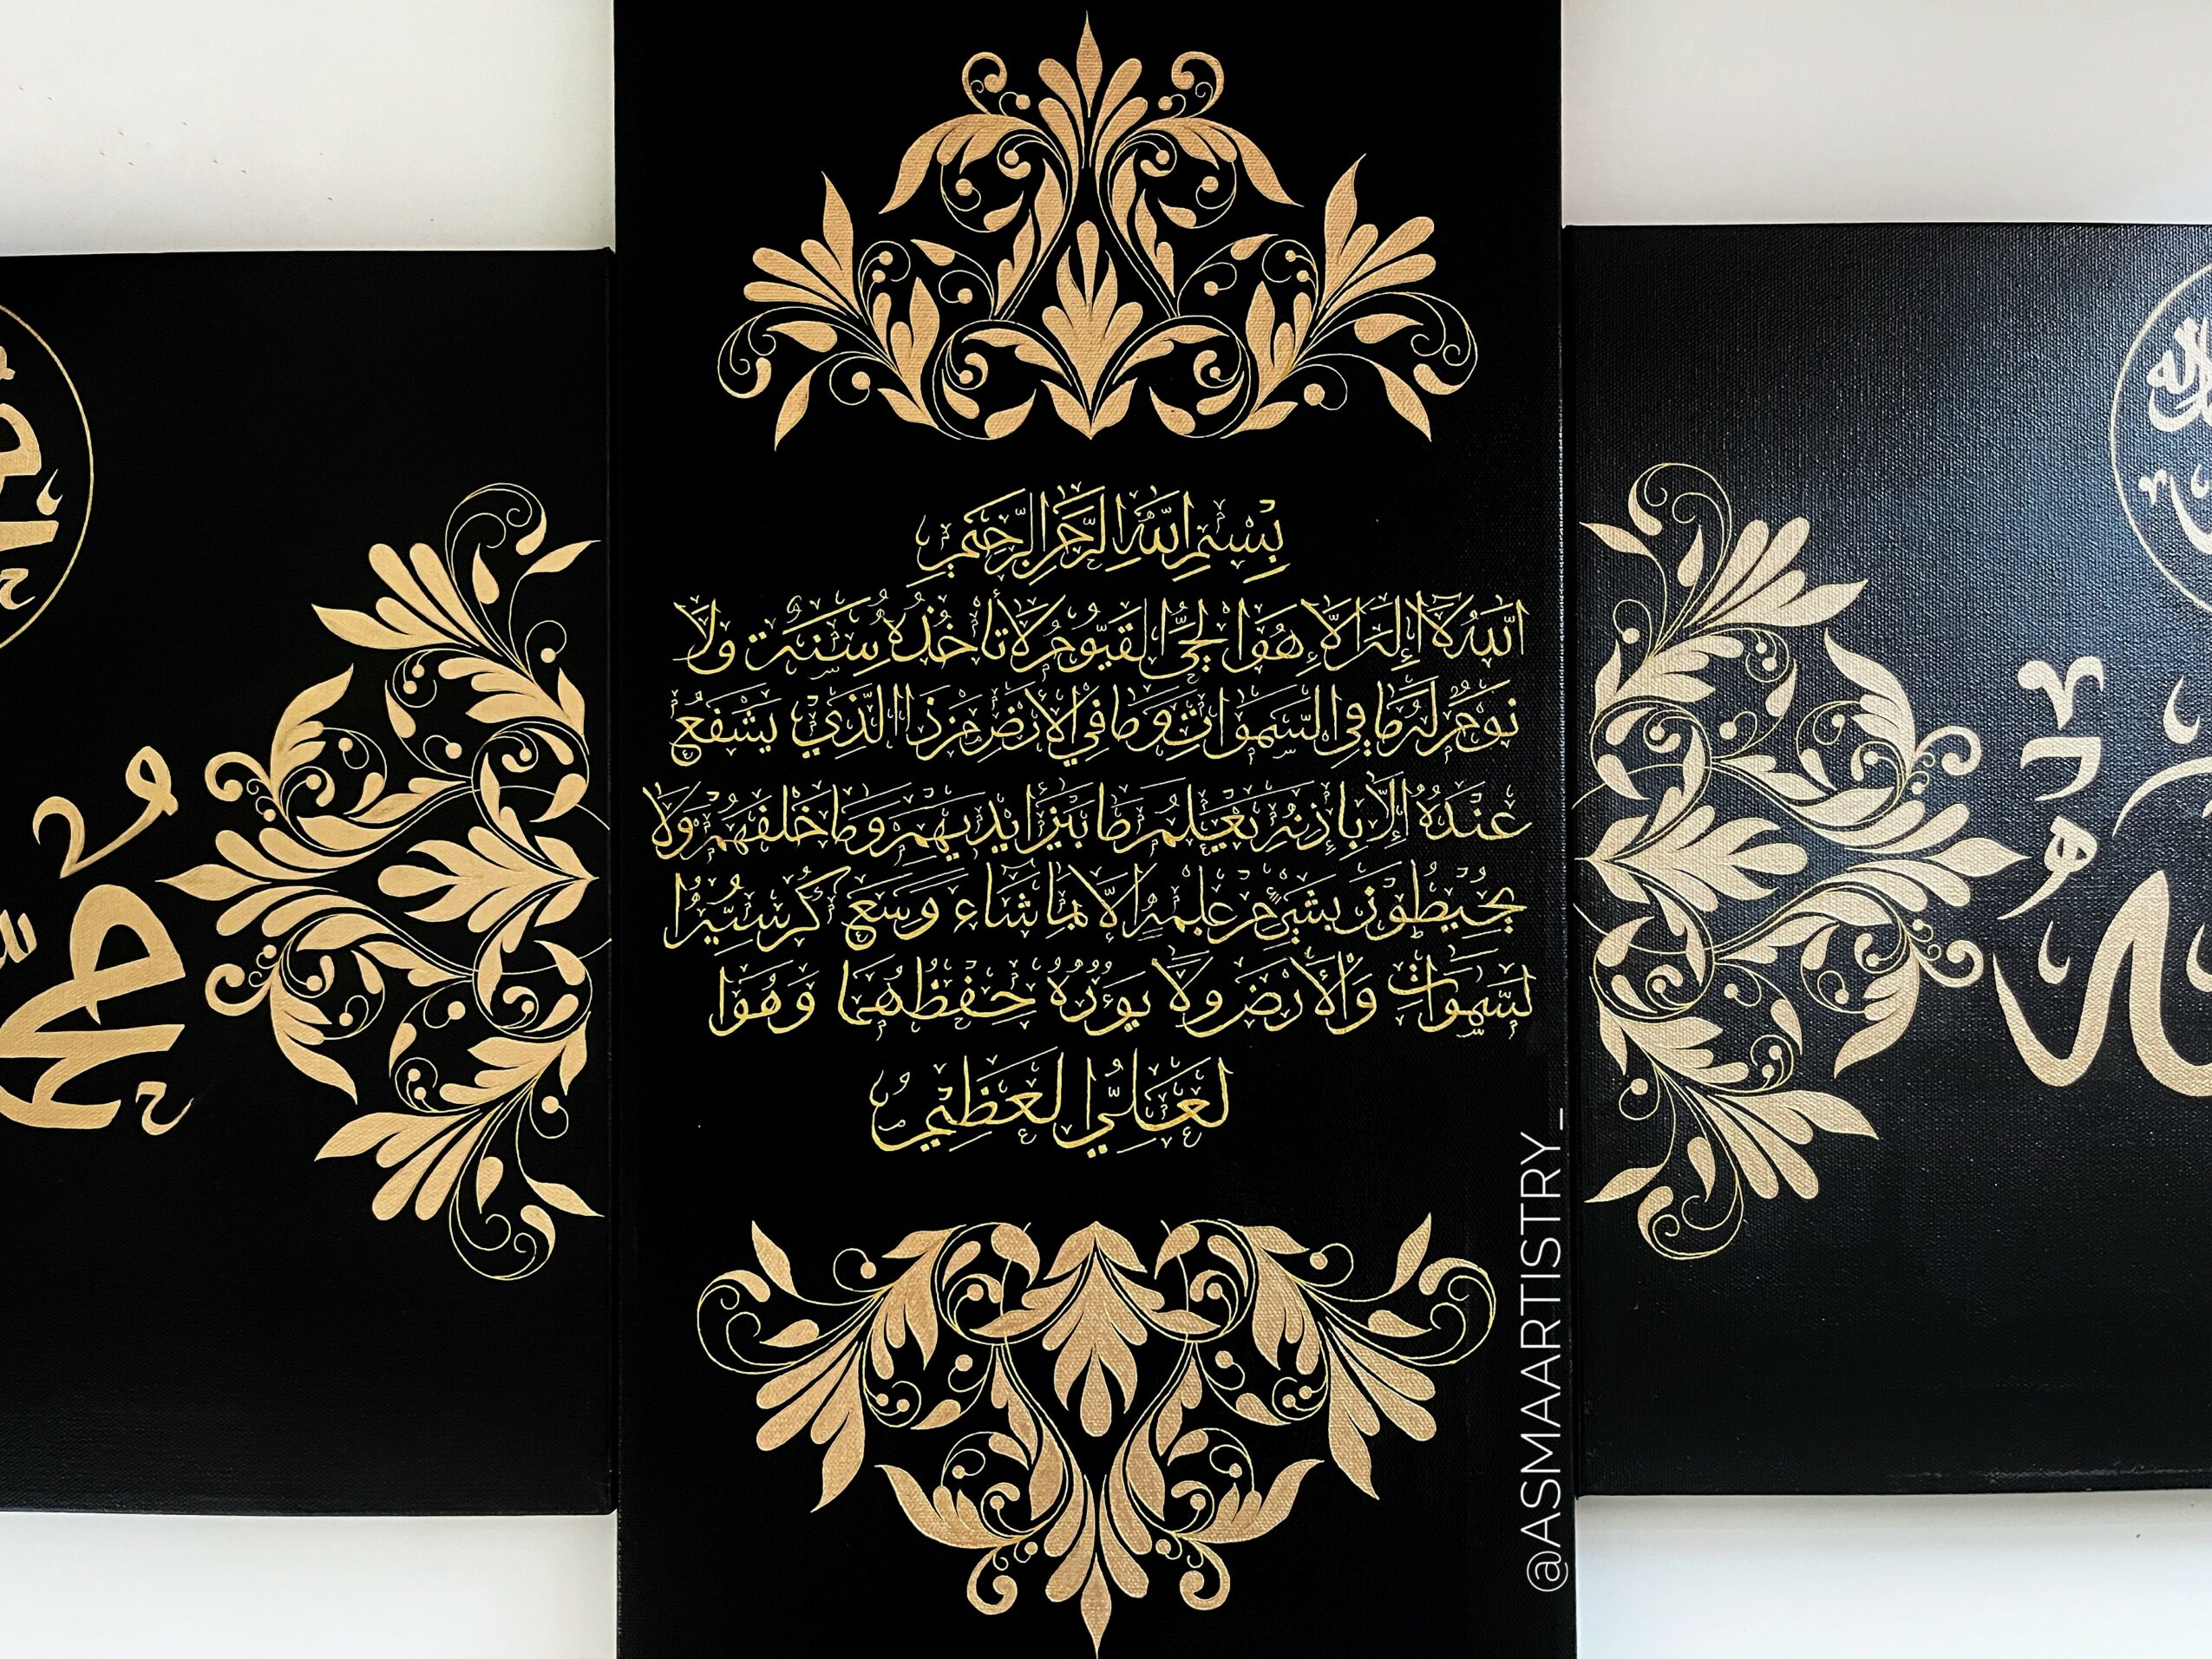 بِسْمِ اللَّهِ الرَّحْمَنِ الرَّحِيمِ
اللَّهُ لَا إِلَهَ إِلَّا هُوَ الْحَيُّ الْقَيُّومُ لَا تَأْخُذُهُ سِنَةٌ وَلَا
نَوْمٌ لَهُ مَا فِي السَّمَوَاتِ وَمَا فِي الْأَرْضِ مَنْ ذَا الَّذِي يَشْفَعُ
عِنْدَهُ إِلَّا بِإِذْنِهِ يَعْلَمُ مَا بَيْنَ أَيْدِيهِمْ وَمَا خَلْفَهُمْ وَلَا
يُحِيطُونَ بِشَيْءٍ مِنْ عِلْمِهِ إِلَّا بِمَا شَاءَ وَسِعَ كُرْسِيُّهُ ا
لسَّمَوَاتِ وَالْأَرْضَ وَلَا يَؤُدُهُ حِفْظُهُمَا وَهُوَ ا
لْعَلِيُّ الْعَظِيمُ
@ASMAARTISTRY_